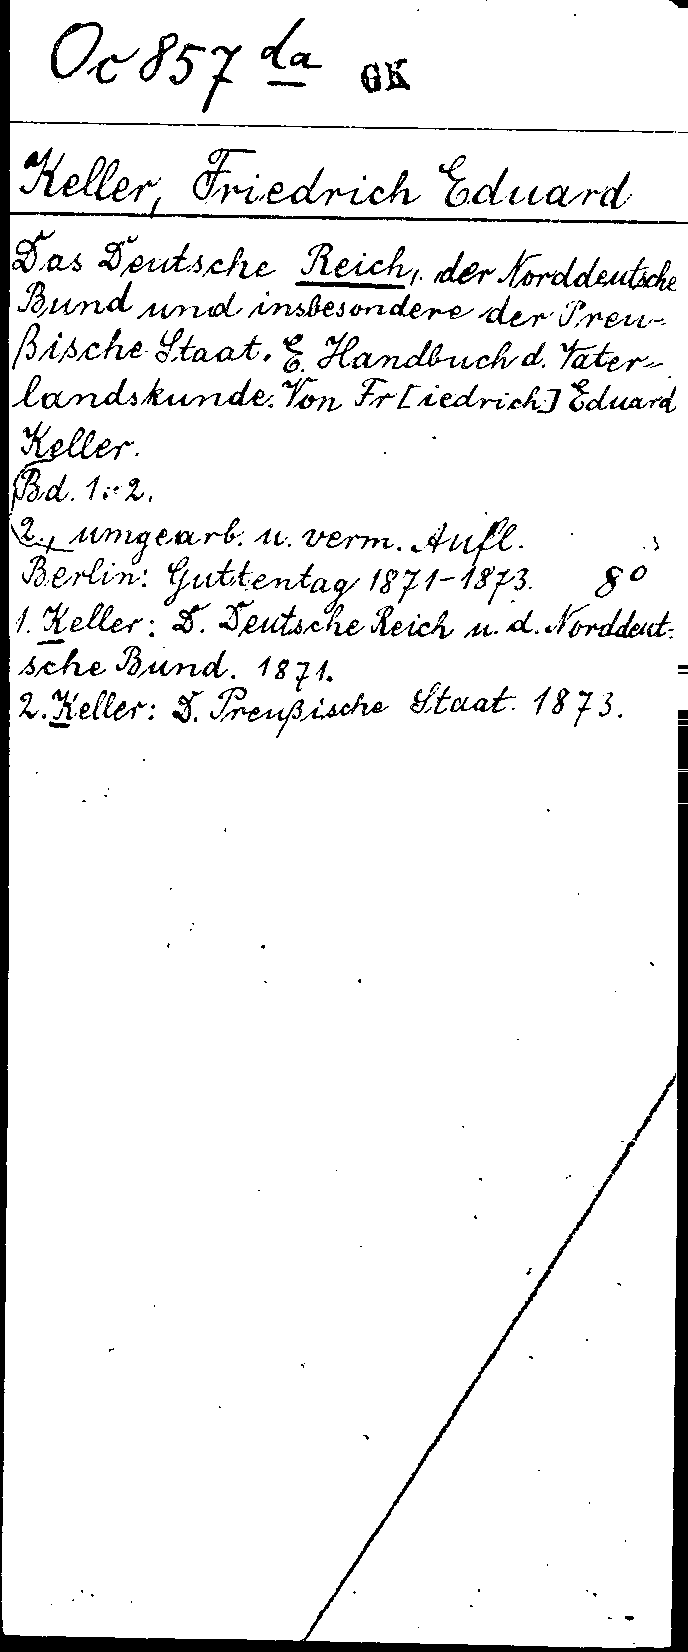 Oc 857 da GK
Keller, Friedrich Eduard
Das Deutsche Reich, der Norddeutsche
Bund und insbesondere der Preu-
ßische Staat. E. Handbuch d. Vater-
landskunde. Von Fr[iedrich] Eduard
Keller.
Bd. 1.-2.
2., umgearb. u. verm. Aufl.
Berlin: Guttentag 1871-1873. 8°
1. Keller: D. Deutsche Reich u. d. Norddeut-
sche Bund. 1871.
2. Keller: D. Preußische Staat. 1873.